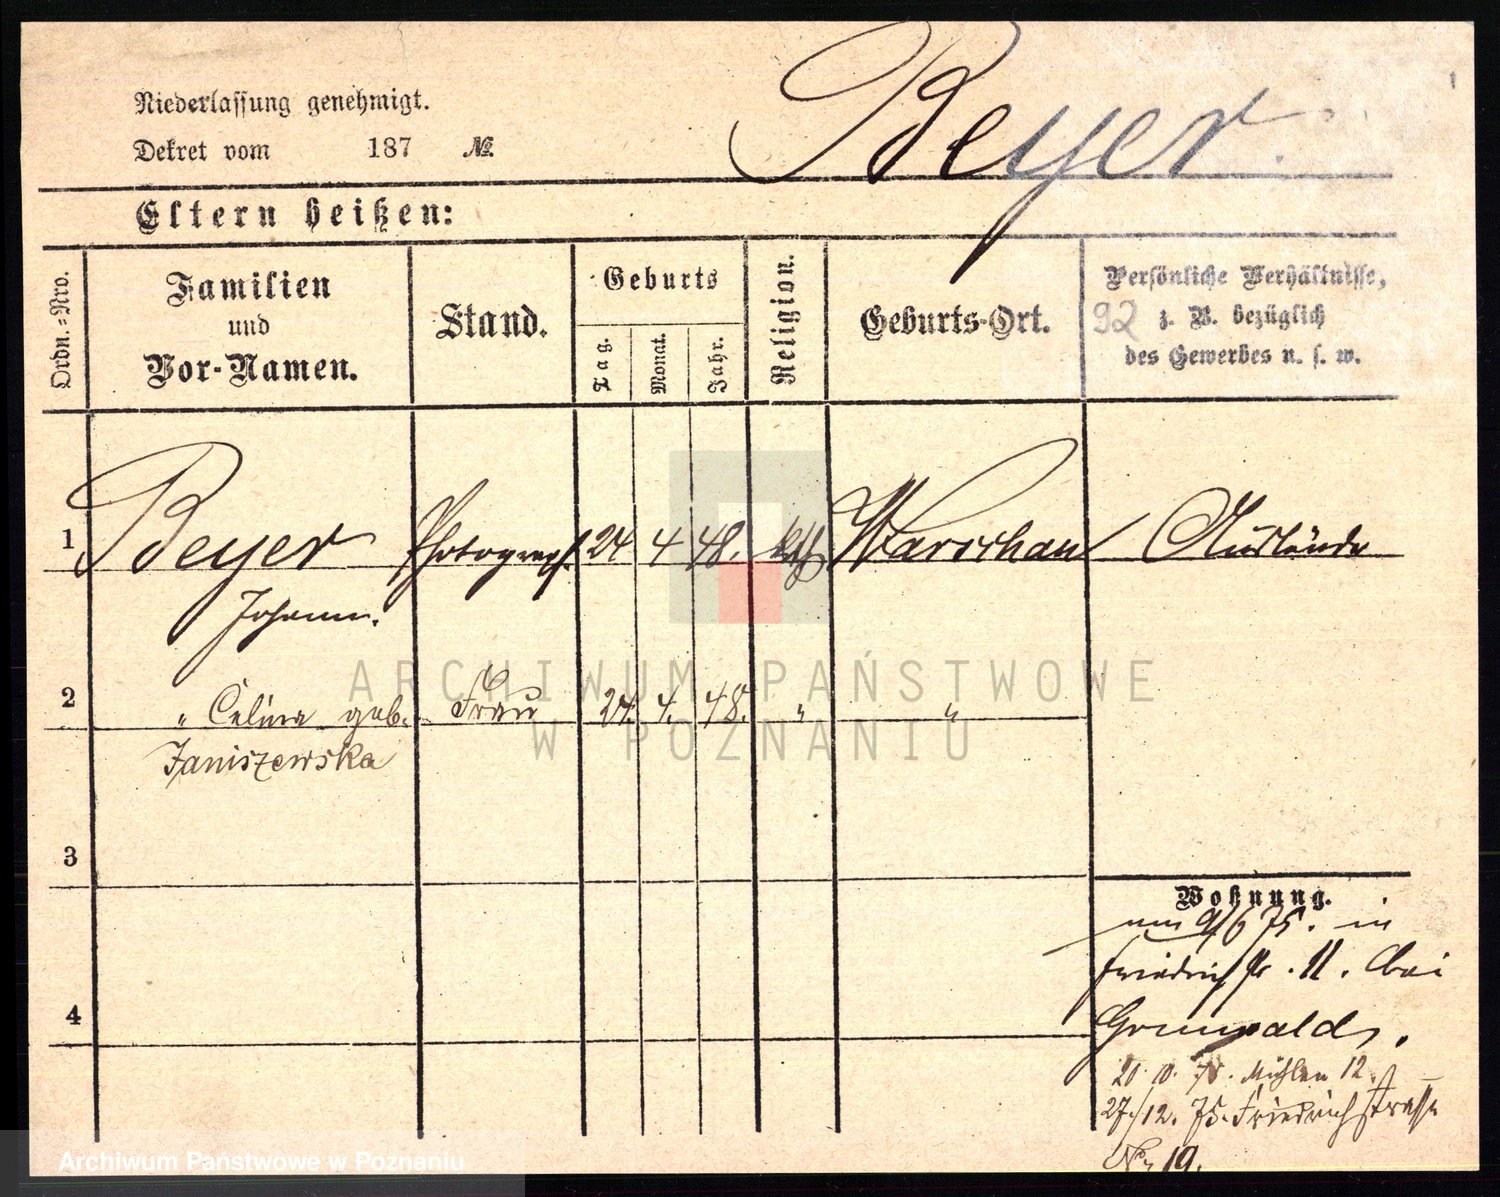 Beyer
Niederlassung genehmigt.
Dekret vom 187 №
Eltern heißen:
Ordn.-Nro.
Familien
und
Vor-Namen.
Stand.
Geburts
Tag.
Monat.
Jahr.
Religion.
Geburts-Ort.
Persönliche Verhältnisse,
92 z. B. bezüglich
des Gewerbes u. s. w.
1 Beyer Photograph. 24 4 48. kath Warschau Ausländer
Johann.
2 " Celina geb. Frau 24. 4. 48. " "
Janiszewska
3
4
Wohnung.
am 9/6 75. in
Friedrichstr. 11. bei
Grunwald.
Mühlen 12.
27/12. 75. Friedrichstrasse
No 19.
ARCHIWUM PAŃSTWOWE
W POZNANIU
Archiwum Państwowe w Poznaniu